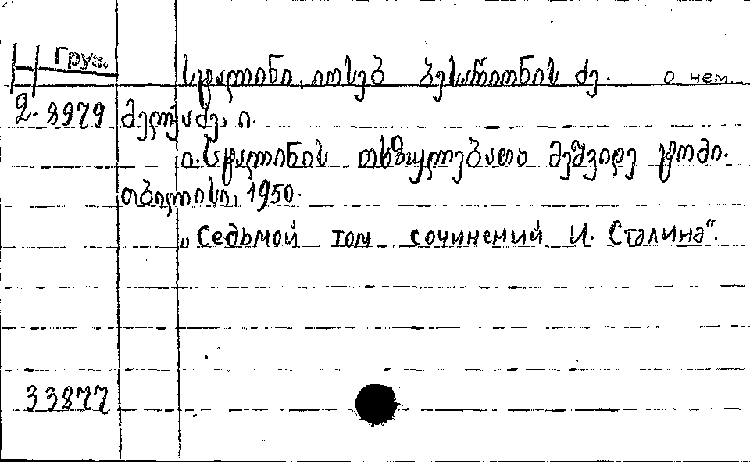 Груз.
სტალინი, იოსებ ბესარიონის ძე. о нем
2.8979 მელქაძე, ი.
ი. სტალინის თხზულებათა მეშვიდე ტომი.
თბილისი, 1950.
„Седьмой том сочинений И. Сталина“.
33877